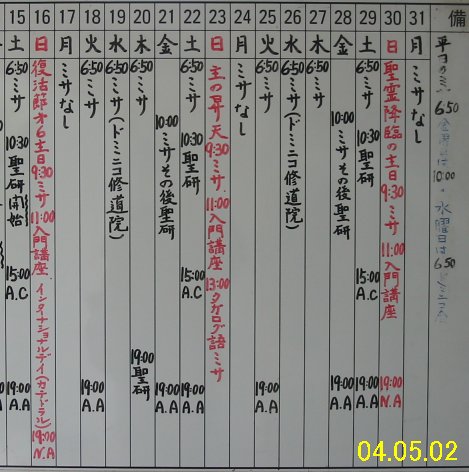 15 16 17 18 19 20 21 22 23 24 25 26 27 28 29 30 31 備
土 日 月 火 水 木 金 土 日 月 火 水 木 金 土 日 月
6:50 ミサ 10:30 聖研(開始) 15:00 A.C 19:00 A.A
復活節オ6主日 9:30 ミサ 11:00 入門講座 インターナショナルデイ(カテドラル) 19:00 N.A
ミサなし
6:50 ミサ 19:00 A.A
6:50 ミサ(ドミニコ修道院)
6:50 ミサ 19:00 聖研
10:00 ミサその後聖研 19:00 A.A
6:50 ミサ 10:30 聖研 15:00 A.C 19:00 A.A
主の昇天 9:30 ミサ 11:00 入門講座 13:00 タガログ語ミサ
ミサなし
6:50 ミサ 19:00 A.A
6:50 ミサ(ドミニコ修道院)
6:50 ミサ
10:00 ミサその後聖研 19:00 A.A
6:50 ミサ 10:30 聖研 15:00 A.C 19:00 A.A
聖霊降臨の主日 9:30 ミサ 11:00 入門講座 19:00 N.A
ミサなし
平日のミサ 6:50 金曜日は 10:00・水曜日は 6:50
04.05.02